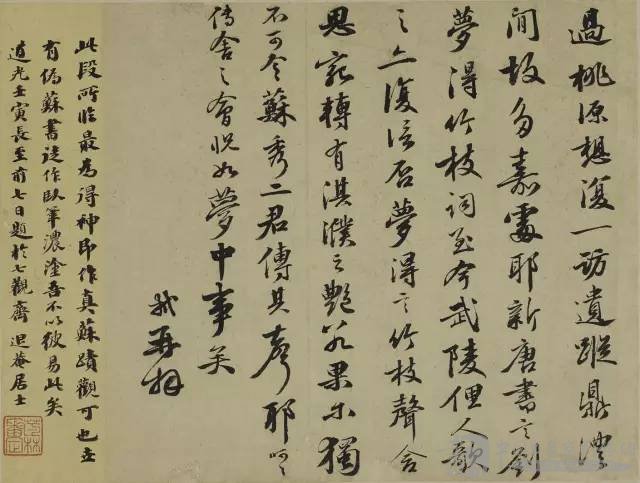 過桃源想復一訪遺蹤鼎澧
間故多嘉處耶新唐書言劉
夢得竹枝詞至今武陵俚人歌
之亦復信否夢得言竹枝聲含
思宛轉有淇濮之艷若果爾獨
不可令蘇秀二君傳其聲耶
傳舍之會怳如夢中事矣
軾再拜
此段所臨最為得神即作真蘇蹟觀可也世
有偽蘇書徒作臥筆濃塗吾不以彼易此矣
道光壬寅長至前七日題於七觀齋 退菴居士